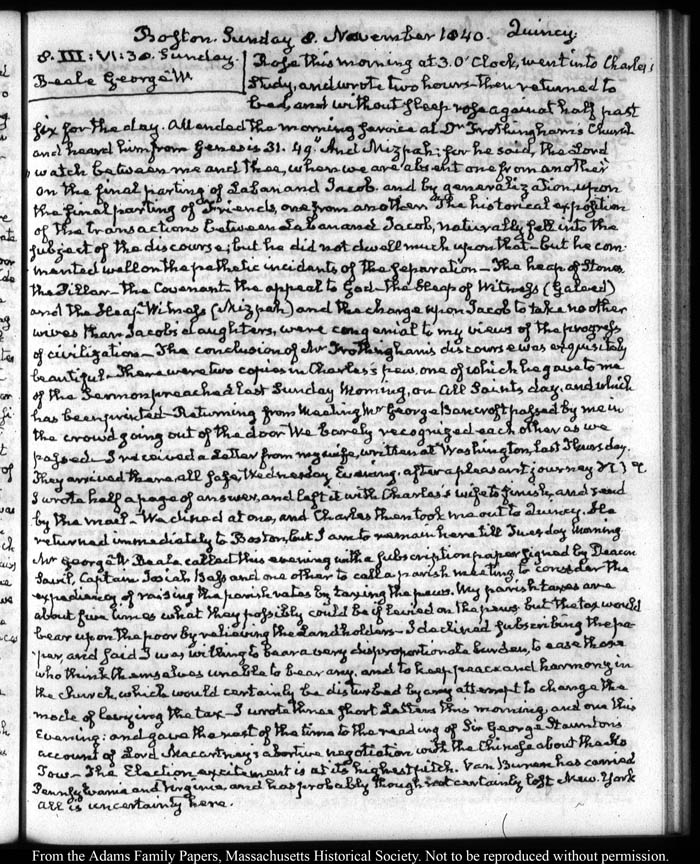 Boston. Sunday 8. November 1840. Quincy
8. III: VI: 30. Sunday.
Beale George W.
Rose this morning at 3. O'Clock, went into Charles's
Study, and wrote two hours—then returned to
bed, and without sleep rose again at half past
six for the day. Attended the morning service at Dr Frothingham's Church
and heard him from Genesis 31. 49. "And Mizpah; for he said, the Lord
watch between me and thee, when we are absent one from another"
on the final parting of Laban and Jacob, and by generalization, upon
the final parting of Friends, one from another. The historical exposition
of the transactions between Laban and Jacob, naturally fell into the
subject of the discourse; but he did not dwell much upon that—but he com-
mented well on the pathetic incidents of the separation—The heap of Stones
the Pillar—the Covenant—the appeal to God—the Heap of Witness (Galeed)
and the Heap Witness (Mizpah) and the charge upon Jacob to take no other
wives than Jacob's daughters, were congenial to my views of the progress
of civilization—The conclusion of Mr Frothingham's discourse was exquisitely
beautiful—There were two copies in Charles's pew, one of which he gave to me
of the Sermon preached last Sunday Morning, on All Saints day, and which
has been printed—Returning from Meeting Mr George Bancroft passed by me in
the crowd going out of the door We barely recognized each other as we
passed—I received a Letter from my wife, written at Washington, last Thursday.
They arrived there, all safe, Wednesday Evening, after a pleasant journey
I wrote half a page of answer, and left it with Charles's wife to finish, and send
by the mail—We dined at one, and Charles then took me out to Quincy. He
returned immediately to Boston, but I am to remain here till Tuesday Morning
Mr George W. Beale called this evening with a subscription paper signed by Deacon
Savil, Captain Josiah Bass and one other to call a parish meeting to consider the
expediency of raising the parish rates by taxing the pews. My parish taxes are
about five times what they possibly could be if levied on the pews. but the tax would
bear upon the poor by relieving the Landholders—I declined subscribing the pa-
per, and said I was willing to bear a very disproportionate burden, to ease those
who think themselves unable to bear any, and to keep peace and harmony in
the church, which would certainly be disturbed by any attempt to change the
mode of levying the tax—I wrote three short Letters this morning, and one this
Evening: and gave the rest of the time to the reading of Sir George Staunton's
account of Lord Maccartney's abortive negotiation with the Chinese about the Ko
Tow—The Election excitement is at its highest pitch. Van Buren has carried
Pennsylvania and Virginia, and has probably though not certainly lost New-York
All is uncertainty here.
From the Adams Family Papers, Massachusetts Historical Society. Not to be reproduced without permission.